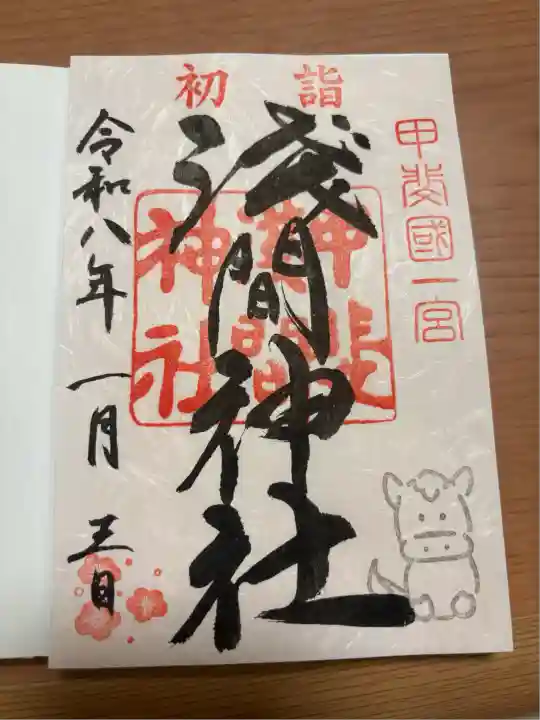 初詣
甲斐國一宮
淺間神社
甲斐
淺間
神社
令和八年 一月 三日